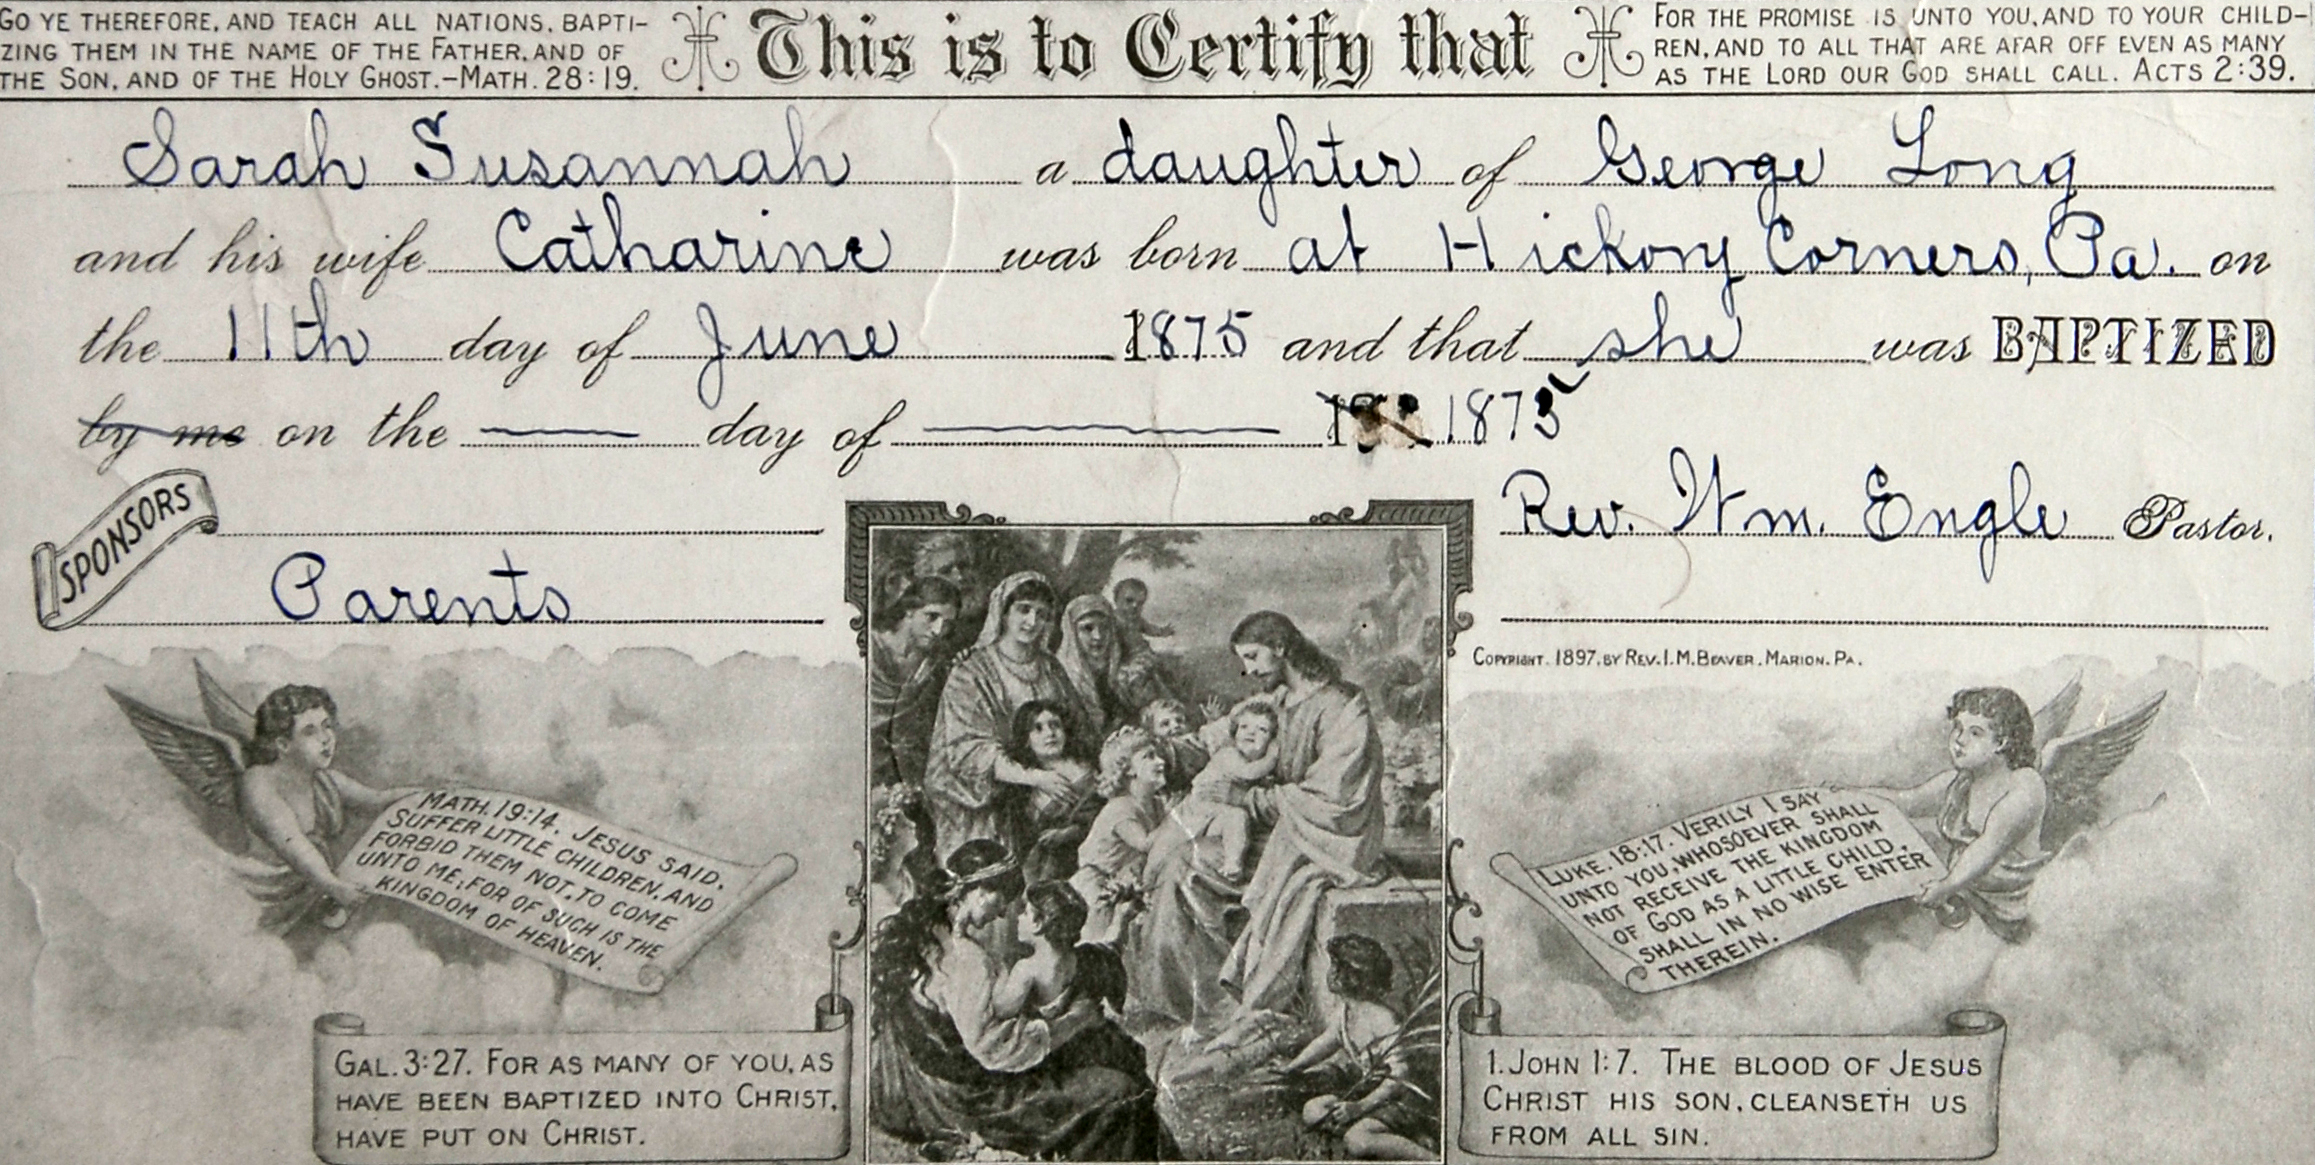 GO YE THEREFORE, AND TEACH ALL NATIONS, BAPTI-
ZING THEM IN THE NAME OF THE FATHER, AND OF
THE SON, AND OF THE HOLY GHOST.—MATH. 28:19.
This is to Certify that
FOR THE PROMISE IS UNTO YOU, AND TO YOUR CHILD-
REN, AND TO ALL THAT ARE AFAR OFF EVEN AS MANY
AS THE LORD OUR GOD SHALL CALL. ACTS 2:39.
Sarah Susannah a daughter of George Long
and his wife Catharine was born at Hickory Corners, Pa. on
the 11th day of June 1875 and that she was BAPTIZED
by me on the — day of — 1875
SPONSORS
Parents
Rev. Wm. Engle Pastor.
COPYRIGHT. 1897, BY REV. I. M. BEAVER. MARION. PA.
MATH. 19:14. JESUS SAID,
SUFFER LITTLE CHILDREN, AND
FORBID THEM NOT, TO COME
UNTO ME; FOR OF SUCH IS THE
KINGDOM OF HEAVEN.
LUKE. 18:17. VERILY I SAY
UNTO YOU, WHOSOEVER SHALL
NOT RECEIVE THE KINGDOM
OF GOD AS A LITTLE CHILD,
SHALL IN NO WISE ENTER
THEREIN.
GAL. 3:27. FOR AS MANY OF YOU, AS
HAVE BEEN BAPTIZED INTO CHRIST,
HAVE PUT ON CHRIST.
1. JOHN 1:7. THE BLOOD OF JESUS
CHRIST HIS SON, CLEANSETH US
FROM ALL SIN.